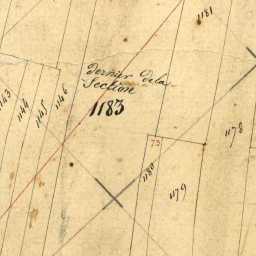 1181
Dernier De la
Section
1183
1143
1144
1145
1146
1178
73
1180
1179